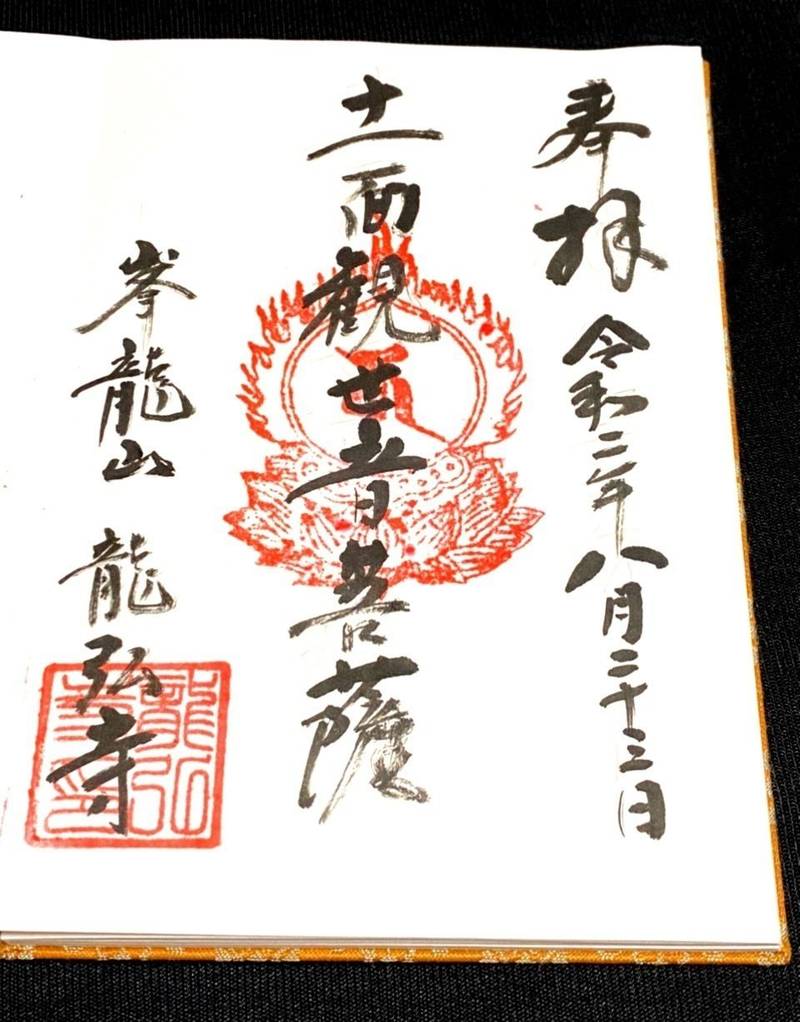 奉拝 令和二年八月二十三日
十一面観世音菩薩
峯龍山 龍弘寺
龍弘寺印